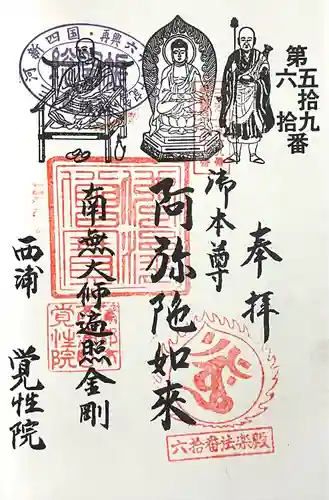 第五拾九
六拾番
奉拝
御本尊
阿弥陀如來
南無大師遍照金剛
西浦 覚性院
覚性院
六拾番法楽殿